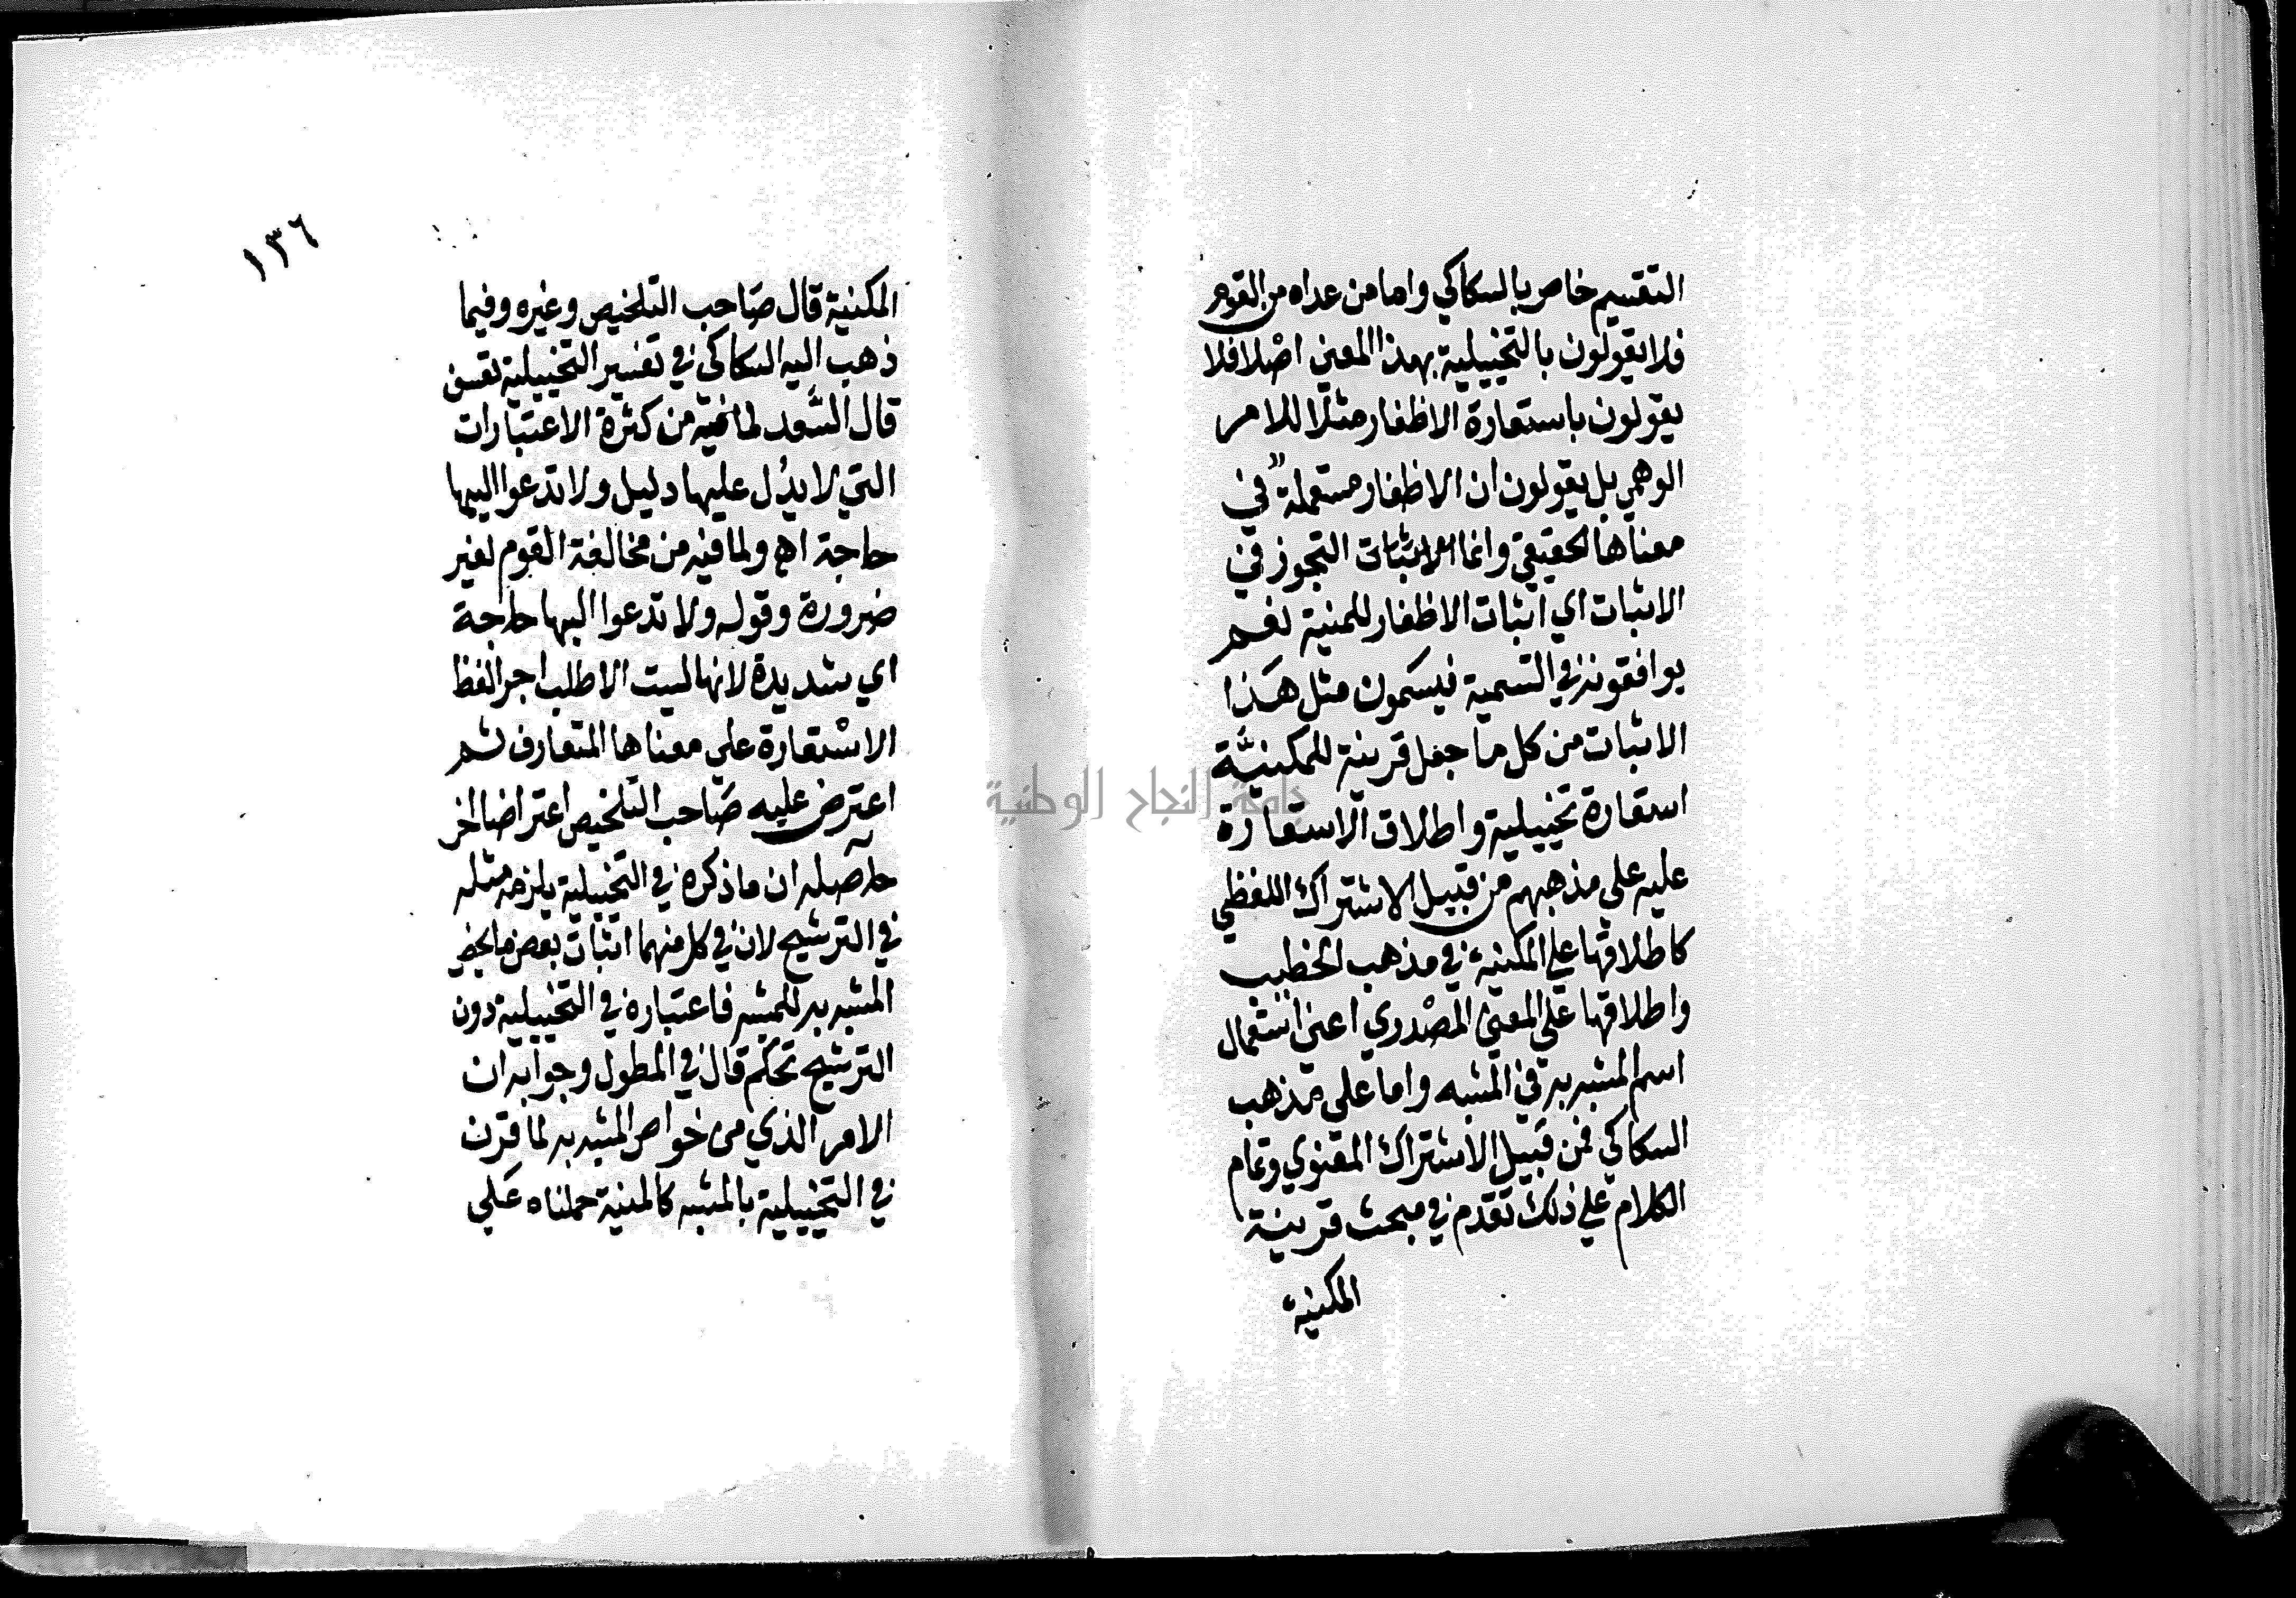 التقسيم خاص بالسكاكي واما من عداه من القوم
فلا يقولون بالتخييلية بهذا المعنى اصلا فلا
يقولون باستعارة الاظفار مثلا للامر
الوهمي بل يقولون ان الاظفار مستعملة في
معناها الحقيقي وانما التجوز في
الاثبات اي اثبات الاظفار للمنية نعم
يوافقونه في التسمية فيسمون مثل هذا
الاثبات من كل ما جعل قرينة للمكنية
استعارة تخييلية واطلاق الاستعارة
عليه على مذهبهم من قبيل الاشتراك اللفظي
كاطلاقها على المكنية في مذهب الخطيب
واطلاقها على المعنى المصدري اعني استعمال
اسم المشبه به في المشبه واما على مذهب
السكاكي فمن قبيل الاشتراك المعنوي وتمام
الكلام على ذلك تقدم في مبحث قرينة
المكنية
١٣٦
المكنية قال صاحب التلخيص وغيره وفيما
ذهب اليه السكاكي في تفسير التخييلية تعسف
قال السعد لما فيه من كثرة الاعتبارات
التي لا يدل عليها دليل ولا تدعوا اليها
حاجة اه ولما فيه من مخالفة القوم لغير
ضرورة وقوله ولا تدعوا اليها حاجة
اي شديدة لانها ليست الا طلب اجرا لفظ
الاستعارة على معناها المتعارف ثم
اعترض عليه صاحب التلخيص اعتراضا اخر
حاصله ان ما ذكره في التخييلية يلزمه مثله
في الترشيح لان في كل منهما اثبات بعض ما يخص
المشبه به للمشبه فاعتباره في التخييلية دون
الترشيح تحكم قال في المطول وجوابه ان
الامر الذي من خواص المشبه به لما قرن
في التخييلية بالمشبه كالمنية حملناه على
جامعة النجاح الوطنية